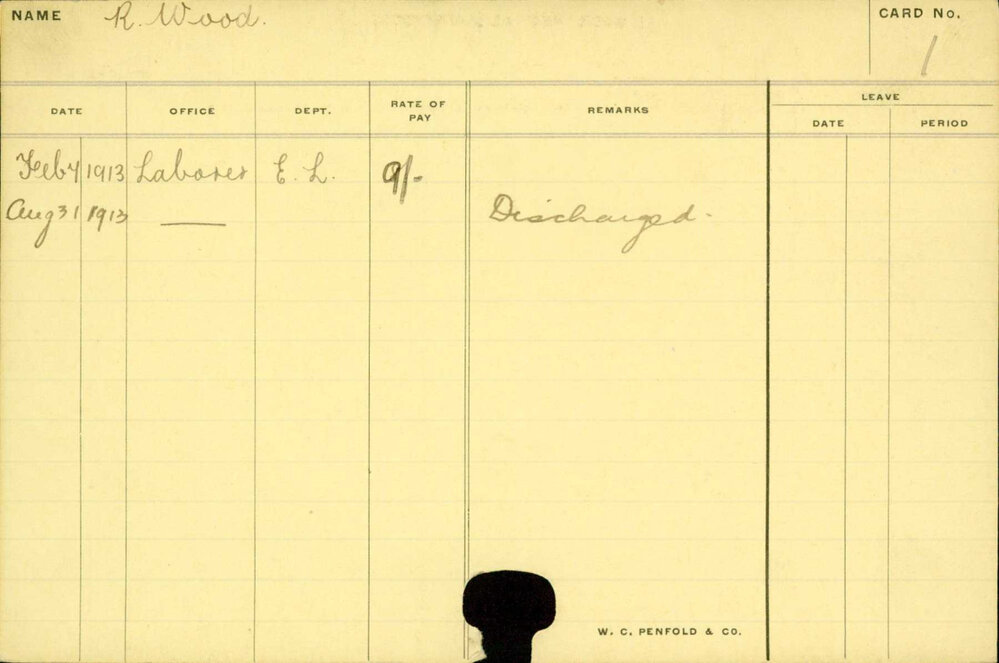 NAME R. Wood. CARD No. 1
DATE OFFICE DEPT. RATE OF PAY REMARKS LEAVE
DATE PERIOD
Feb 7 1913 Laborer E. L. 9/-
Aug 31 1913 — Discharged.
W. C. PENFOLD & CO.